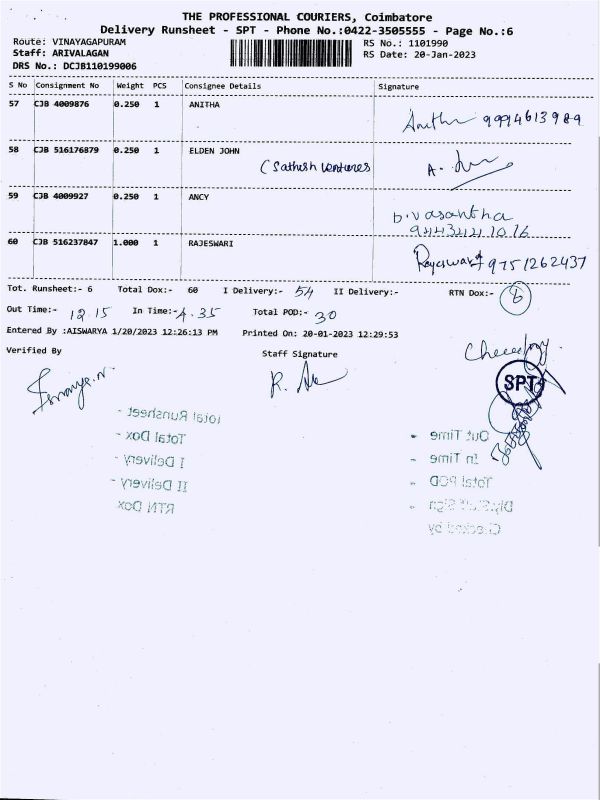 THE PROFESSIONAL COURIERS, Coimbatore
Delivery Runsheet - SPT - Phone No.:0422-3505555 - Page No.:6
Route: VINAYAGAPURAM RS No.: 1101990
Staff: ARIVALAGAN RS Date: 20-Jan-2023
DRS No.: DCJB110199006
S No Consignment No Weight PCS Consignee Details Signature
57 CJB 4009876 0.250 1 ANITHA
Anitha 9994613989
58 CJB 516176879 0.250 1 ELDEN JOHN
(Sathish Ventures
59 CJB 4009927 0.250 1 ANCY
b.vasantha
60 CJB 516237847 1.000 1 RAJESWARI
Rajeswari 9751262437
Tot. Runsheet:- 6 Total Dox:- 60 I Delivery:- 54 II Delivery:- RTN Dox:- 6
Out Time:- 12.15 In Time:- 4.35 Total POD:- 30
Entered By :AISWARYA 1/20/2023 12:26:13 PM Printed On: 20-01-2023 12:29:53
Verified By Staff Signature
SPT
Total Runsheet -
Total Dox -
I Delivery -
II Delivery -
RTN Dox
Out Time -
In Time -
Total POD -
Dly.Staff Sign -
Checked by